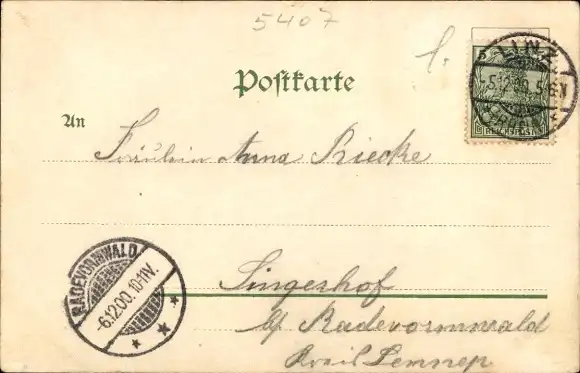 5407
1.
5
REICHSPOST
LINZ
5.12.00.5-6N
Postkarte
An
Fräulein Anna Riecke
RADEVORMWALD
6.12.00.10-11V.
Singeshof
b/ Radevormwald
Kreis Lennep